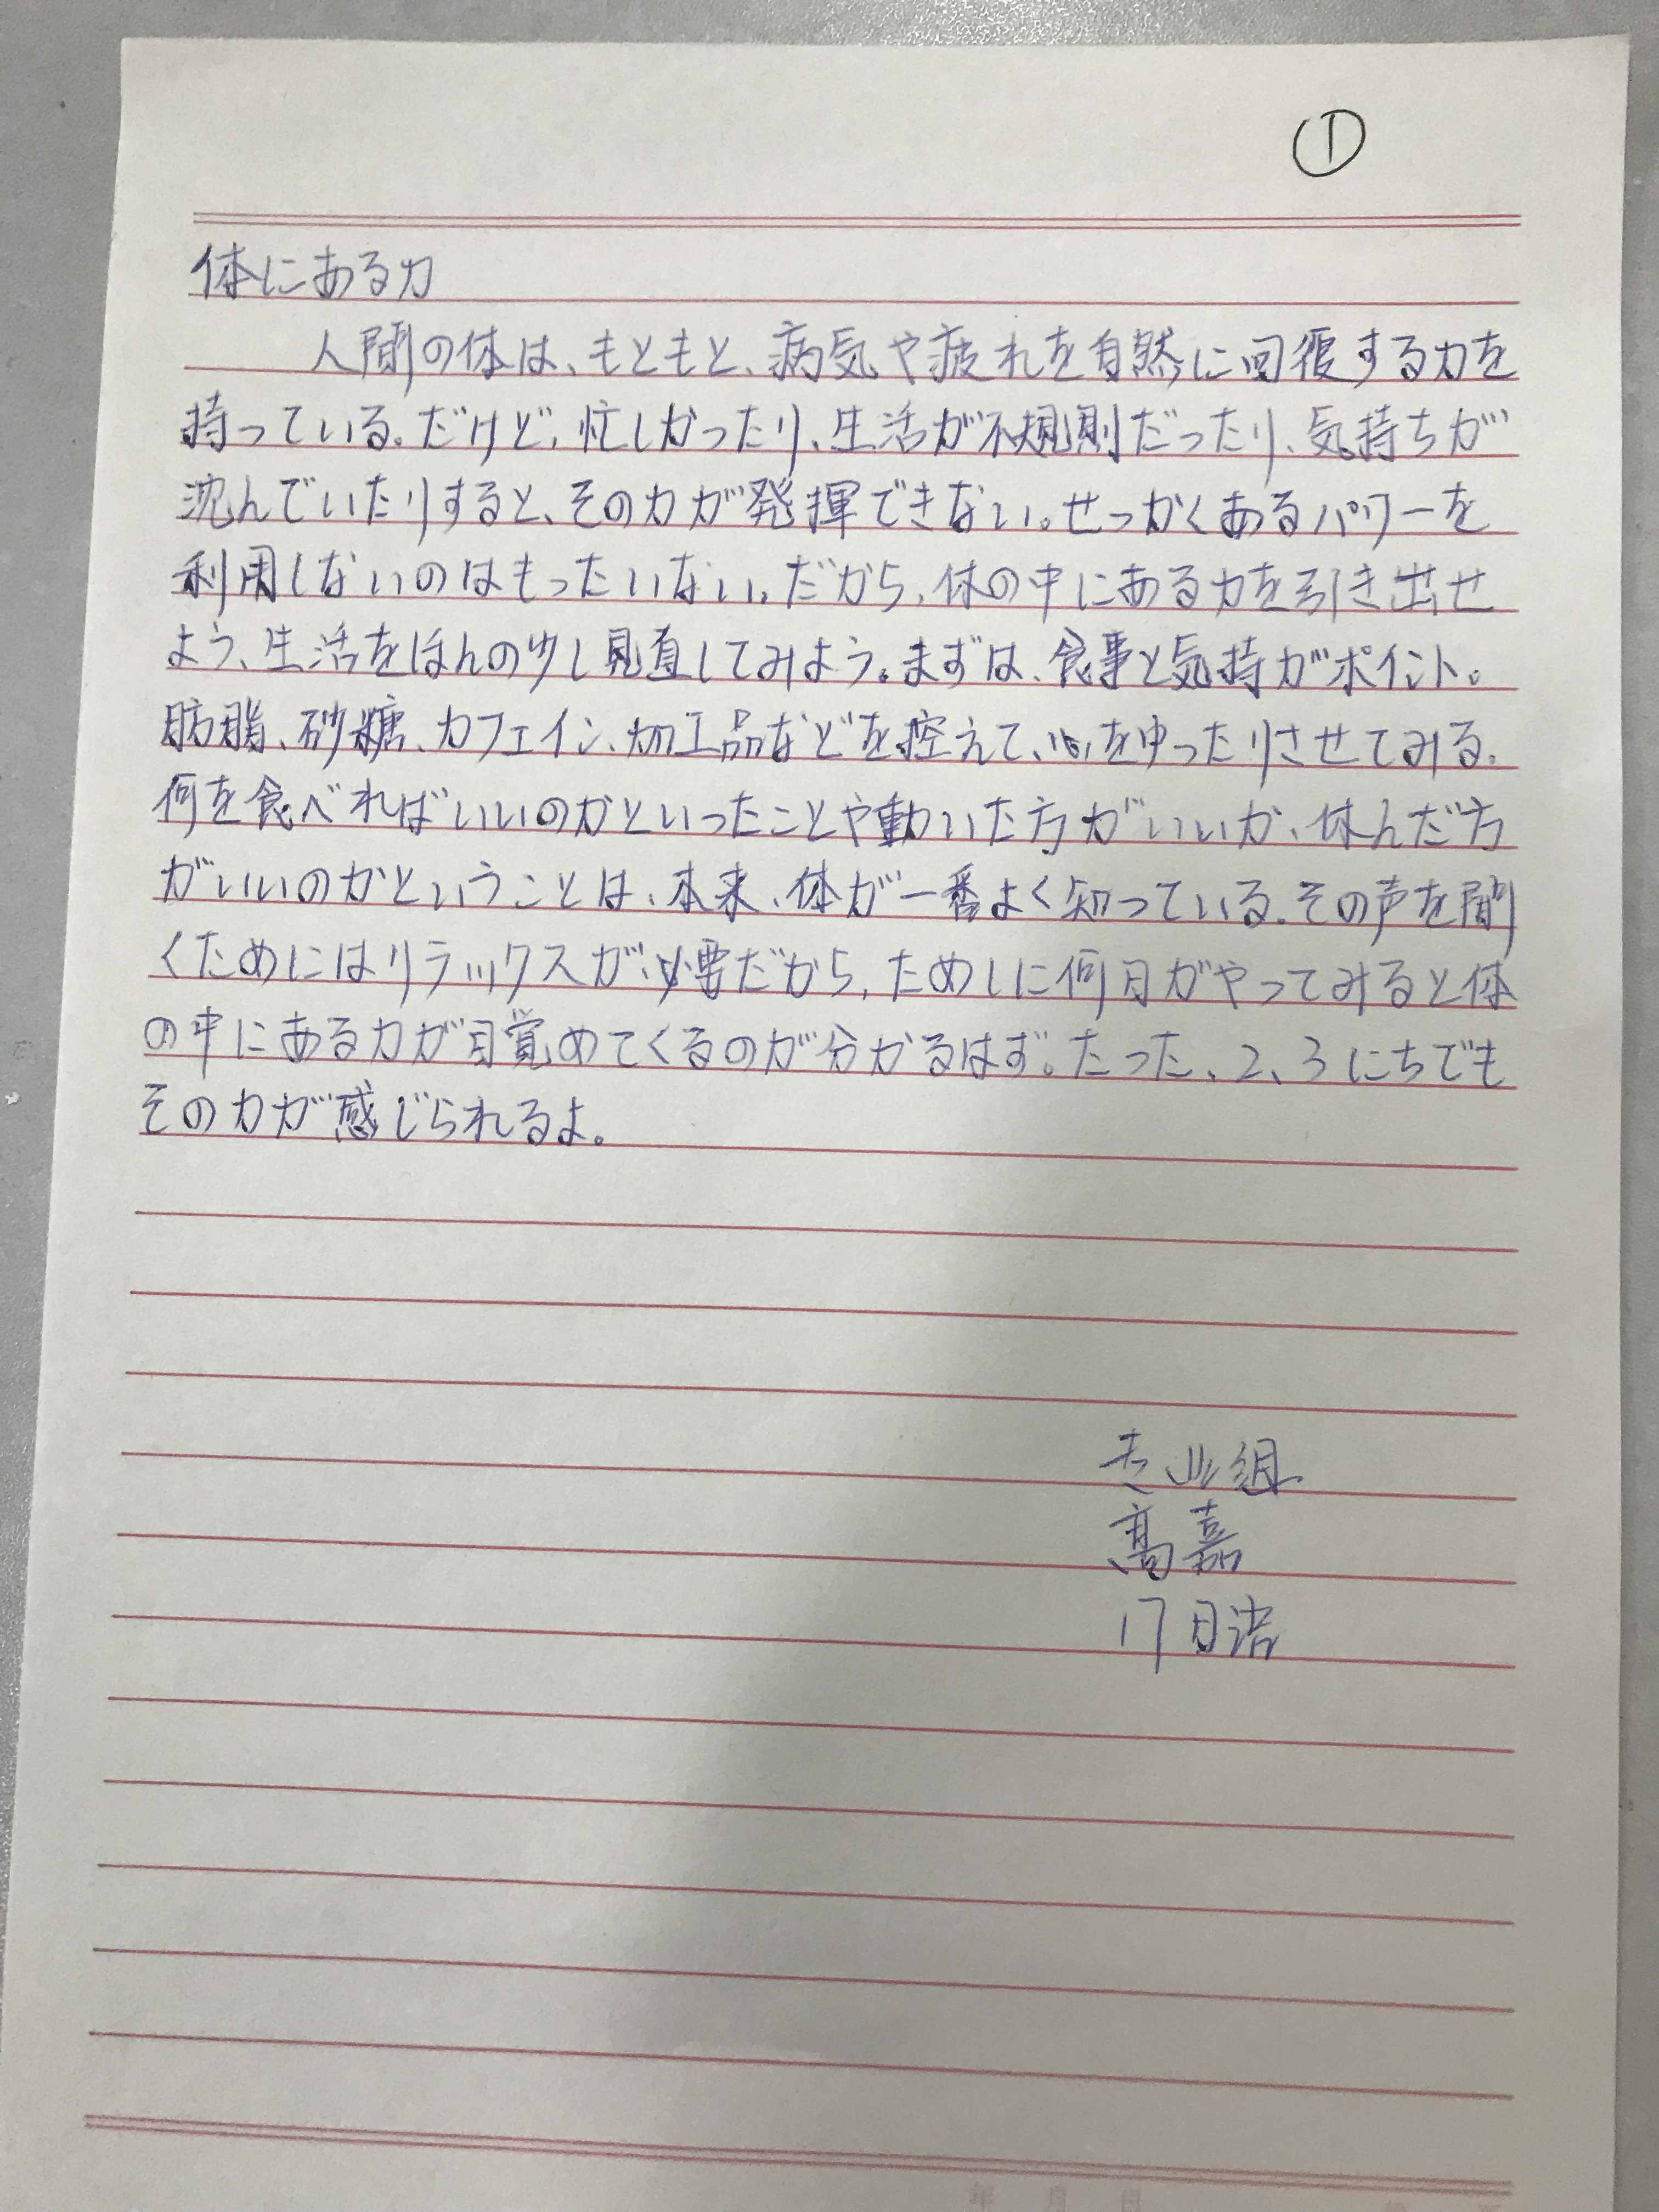 ①
体にある力
人間の体は、もともと、病気や疲れを自然に回復する力を
持っている。だけど、忙しかったり、生活が不規則だったり、気持ちが
沈んでいたりすると、その力が発揮できない。せっかくあるパワーを
利用しないのはもったいない。だから、体の中にある力を引き出せ
よう、生活をほんの少し見直してみよう。まずは、食事と気持がポイント。
肪脂、砂糖、カフェイン、加工品などを控えて、心をゆったりさせてみる。
何を食べればいいのかといったことや動いた方がいいか、休んだ方
がいいのかということは、本来、体が一番よく知っている。その声を聞
くためにはリラックスが必要だから、ためしに何日がやってみると体
の中にある力が目覚めてくるのが分かるはず。たった、2、3にちでも
その力が感じられるよ。
业组
高嘉
17日